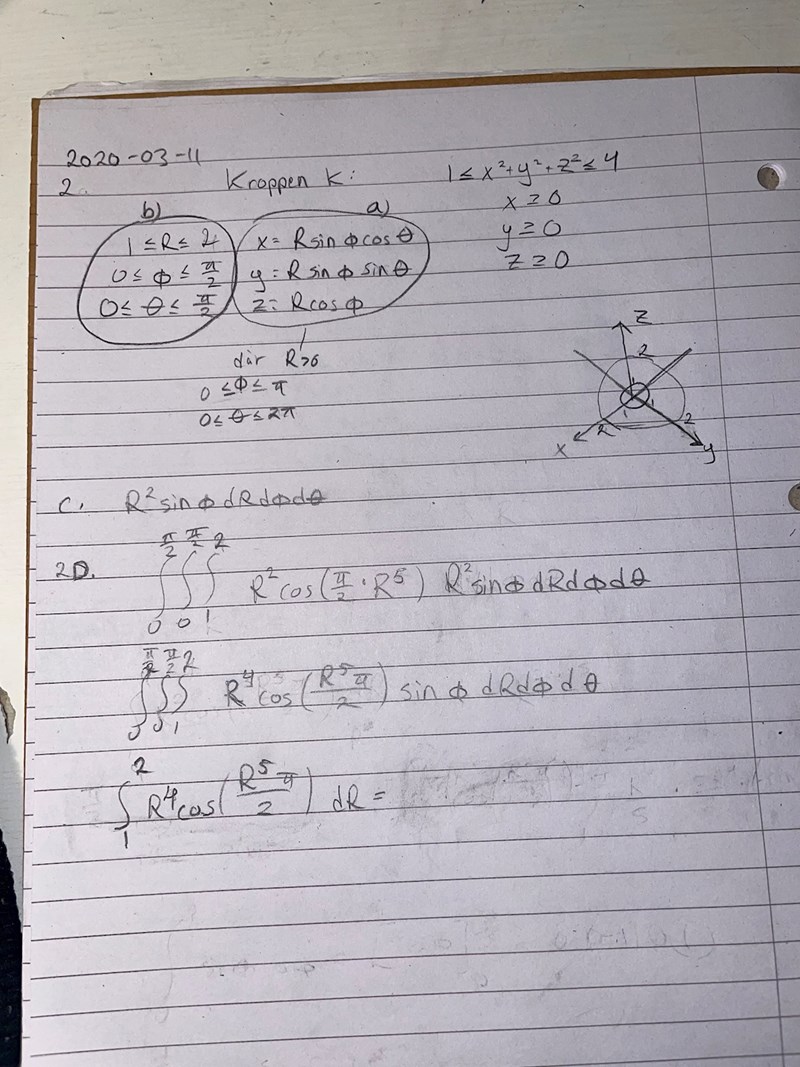 2020-03-11
2. Kroppen K: 1 ≤ x²+y²+z² ≤ 4
x ≥ 0
y ≥ 0
z ≥ 0
b) a)
1 ≤ R ≤ 2 x = R sin φ cos θ
0 ≤ φ ≤ π/2 y = R sin φ sin θ
0 ≤ θ ≤ π/2 z = R cos φ
där R>0
0 ≤ φ ≤ π
0 ≤ θ ≤ 2π
z
2
1
1
2 2
x y
C. R² sin φ dR dφ dθ
2D. ∫₀^(π/2) ∫₀^(π/2) ∫₁^2 R² cos(π/2 · R⁵) R² sin φ dR dφ dθ
∫₀^(π/2) ∫₀^(π/2) ∫₁^2 R⁴ cos(R⁵π/2) sin φ dR dφ dθ
∫₁^2 R⁴ cos(R⁵π/2) dR =